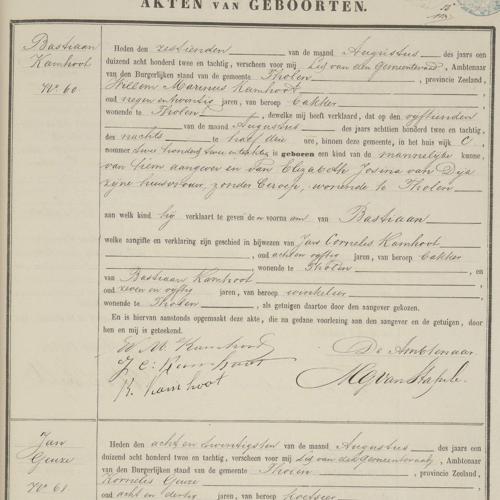 AKTEN VAN GEBOORTEN.
Bastiaan
Kamhoot
No. 60
Heden den zestienden van de maand Augustus des jaars een
duizend acht honderd twee en tachtig, verscheen voor mij Lid van den Gemeenteraad, Ambtenaar
van den Burgerlijken stand van de gemeente Tholen, provincie Zeeland,
Willem Marinus Kamhoot
oud negen en twintig jaren, van beroep bakker
wonende te Tholen, dewelke mij heeft verklaard, dat op den vijftienden
van de maand Augustus des jaars achttien honderd twee en tachtig,
des nachts te half drie ure, binnen deze gemeente, in het huis wijk C,
nommer twee honderd twee en tachtig, is geboren een kind van de mannelijke kunne,
van hem aangever en van Elizabeth Josina van Dijk
zijne huisvrouw, zonder beroep, wonende te Tholen
aan welk kind hij verklaart te geven de voornaam van Bastiaan
welke aangifte en verklaring zijn geschied in bijwezen van Jan Cornelis Kamhoot
, oud acht en vijftig jaren, van beroep bakker
wonende te Tholen, en
van Bastiaan Kamhoot
oud zeven en vijftig jaren, van beroep winkelier
wonende te Tholen, als getuigen daartoe door den aangever gekozen.
En is hiervan aanstonds opgemaakt deze akte, die za gedane voorlezing aan den aangever en de getuigen, door
hen en mij is geteekend.
W. M. Kamhoot
J. C. Kamhoot
B. Kamhoot
De Ambtenaar
Jan
Geuze
No. 61
Heden den acht en twintigsten van de maand Augustus des jaars een
duizend acht honderd twee en tachtig, verscheen voor mij Lid van den Gemeenteraad, Ambtenaar
van den Burgerlijken stand van de gemeente Tholen, provincie Zeeland,
Kornelis Geuze
oud acht en dertig jaren, van beroep koetsier